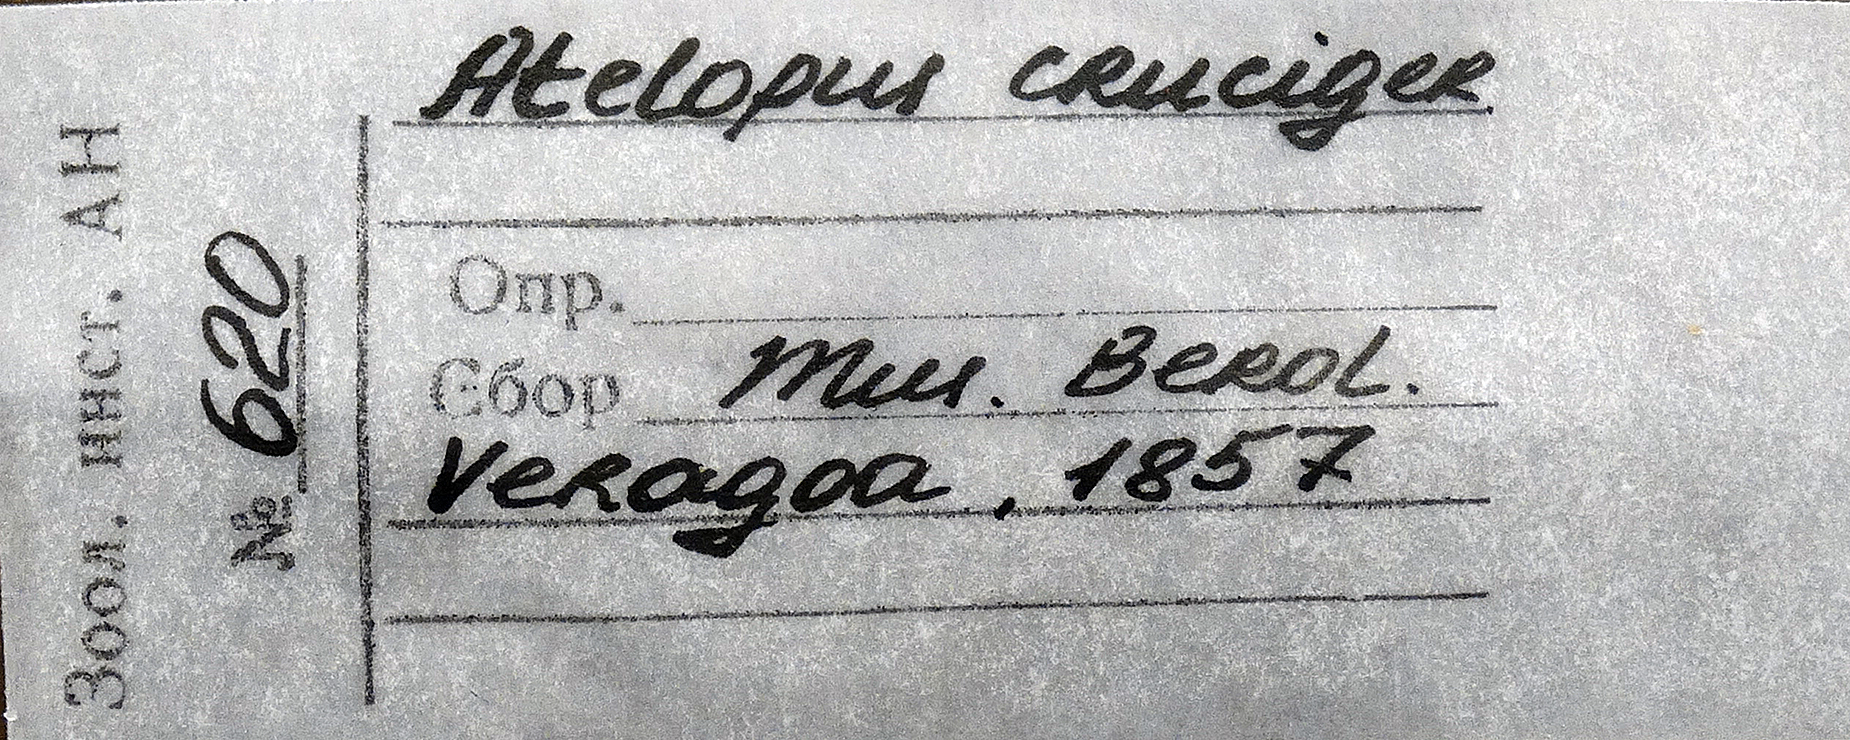 Зоол. инст. АН
№ 620
Atelopus cruciger
Опр.
Сбор Mus. Berol.
Veragoa, 1857